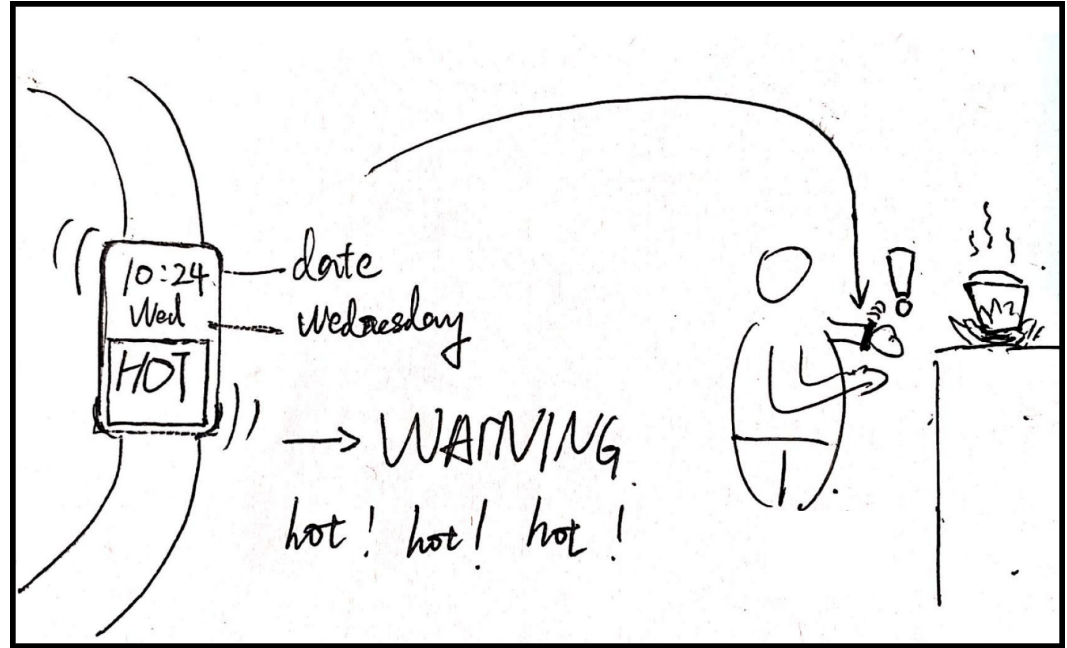 10:24
Wed
HOT
date
Wednesday
→ WARNING.
hot! hot! hot!
!